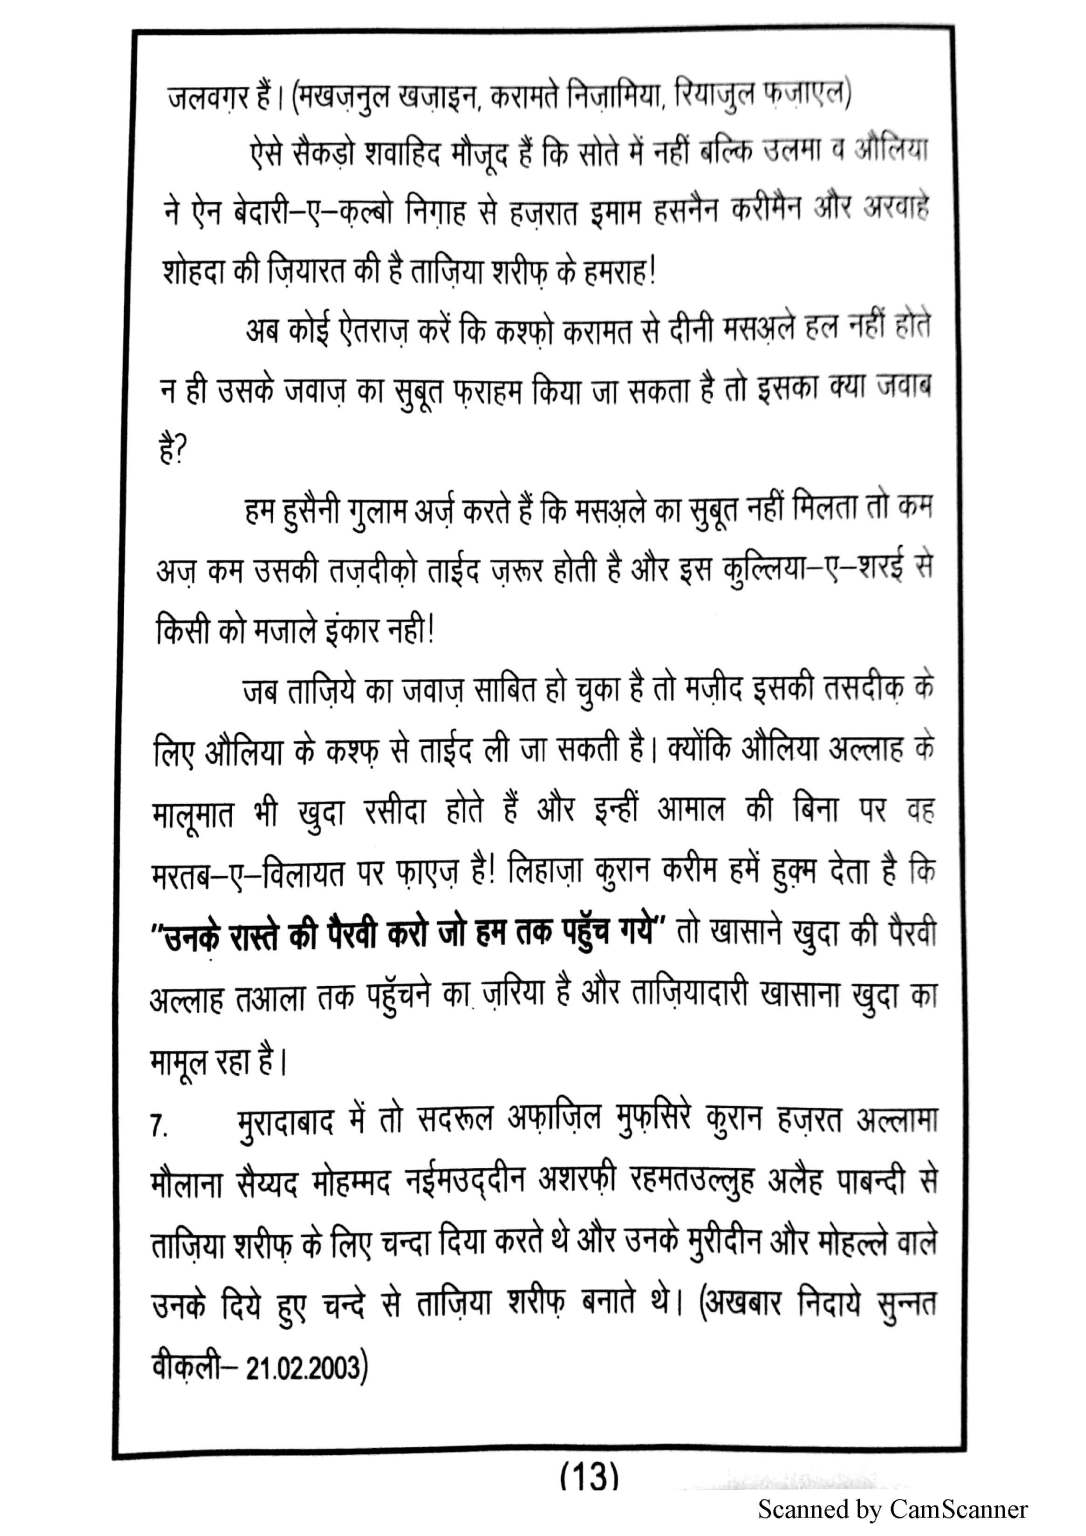 जलवग़र हैं। (मखज़नुल खज़ाइन, करामते निज़ामिया, रियाजुल फ़ज़ाएल)
ऐसे सैकड़ो शवाहिद मौजूद हैं कि सोते में नहीं बल्कि उलमा व औलिया
ने ऐन बेदारी–ए–क़ल्बो निग़ाह से हज़रात इमाम हसनैन करीमैन और अरवाहे
शोहदा की ज़ियारत की है ताज़िया शरीफ़ के हमराह!
अब कोई ऐतराज़ करें कि कश्फ़ो करामत से दीनी मसअ़ले हल नहीं होते
न ही उसके जवाज़ का सुबूत फ़राहम किया जा सकता है तो इसका क्या जवाब
है?
हम हुसैनी गुलाम अर्ज़ करते हैं कि मसअ़ले का सुबूत नहीं मिलता तो कम
अज़ कम उसकी तज़दीक़ो ताईद ज़रूर होती है और इस कुल्लिया–ए–शरई से
किसी को मजाले इंकार नही!
जब ताज़िये का जवाज़ साबित हो चुका है तो मज़ीद इसकी तसदीक़ के
लिए औलिया के कश्फ़ से ताईद ली जा सकती है। क्योंकि औलिया अल्लाह के
मालूमात भी खुदा रसीदा होते हैं और इन्हीं आमाल की बिना पर वह
मरतब–ए–विलायत पर फ़ाएज़ है! लिहाज़ा कुरान करीम हमें हुक़्म देता है कि
"उनके रास्ते की पैरवी करो जो हम तक पहुँच गये" तो खासाने खुदा की पैरवी
अल्लाह तआला तक पहुँचने का ज़रिया है और ताज़ियादारी खासाना खुदा का
मामूल रहा है।
7. मुरादाबाद में तो सदरूल अफ़ाज़िल मुफ़सिरे कुरान हज़रत अल्लामा
मौलाना सैय्यद मोहम्मद नईमउद्दीन अशरफ़ी रहमतउल्लुह अलैह पाबन्दी से
ताज़िया शरीफ़ के लिए चन्दा दिया करते थे और उनके मुरीदीन और मोहल्ले वाले
उनके दिये हुए चन्दे से ताज़िया शरीफ़ बनाते थे। (अखबार निदाये सुन्नत
वीक़ली– 21.02.2003)
(13)
Scanned by CamScanner